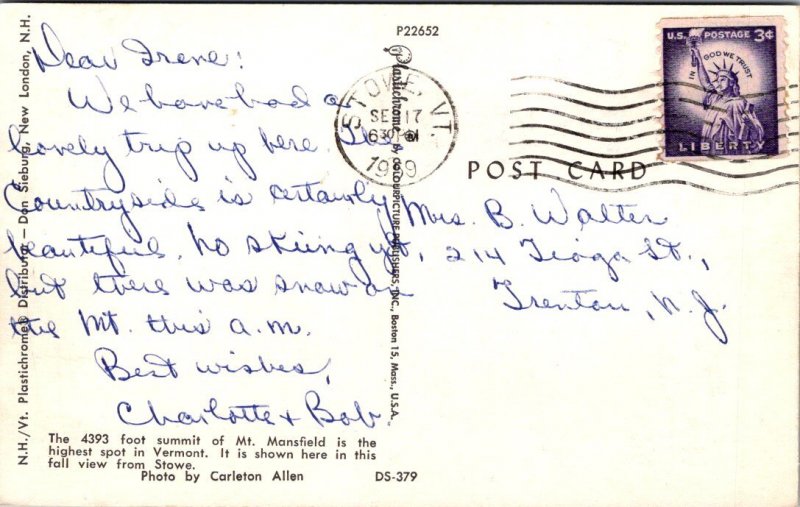 Dear Irene!
We have had a
lovely trip up here. The
Countryside is certainly
beautiful. No skiing yet,
but there was snow on
the Mt. this a.m.
Best wishes,
Charlotte & Bob
The 4393 foot summit of Mt. Mansfield is the
highest spot in Vermont. It is shown here in this
fall view from Stowe.
Photo by Carleton Allen
DS-379
N.H./Vt. Plastichrome® Distributor — Don Sieburg, New London, N.H.
P22652
Plastichrome ® by COLOURPICTURE PUBLISHERS, INC., Boston 15, Mass., U.S.A.
STOWE, VT.
SEP 17
1959
POST CARD
U.S. POSTAGE 3¢
IN GOD WE TRUST
LIBERTY
Mrs. B. Walter
214 Tioga St.,
Trenton, N.J.